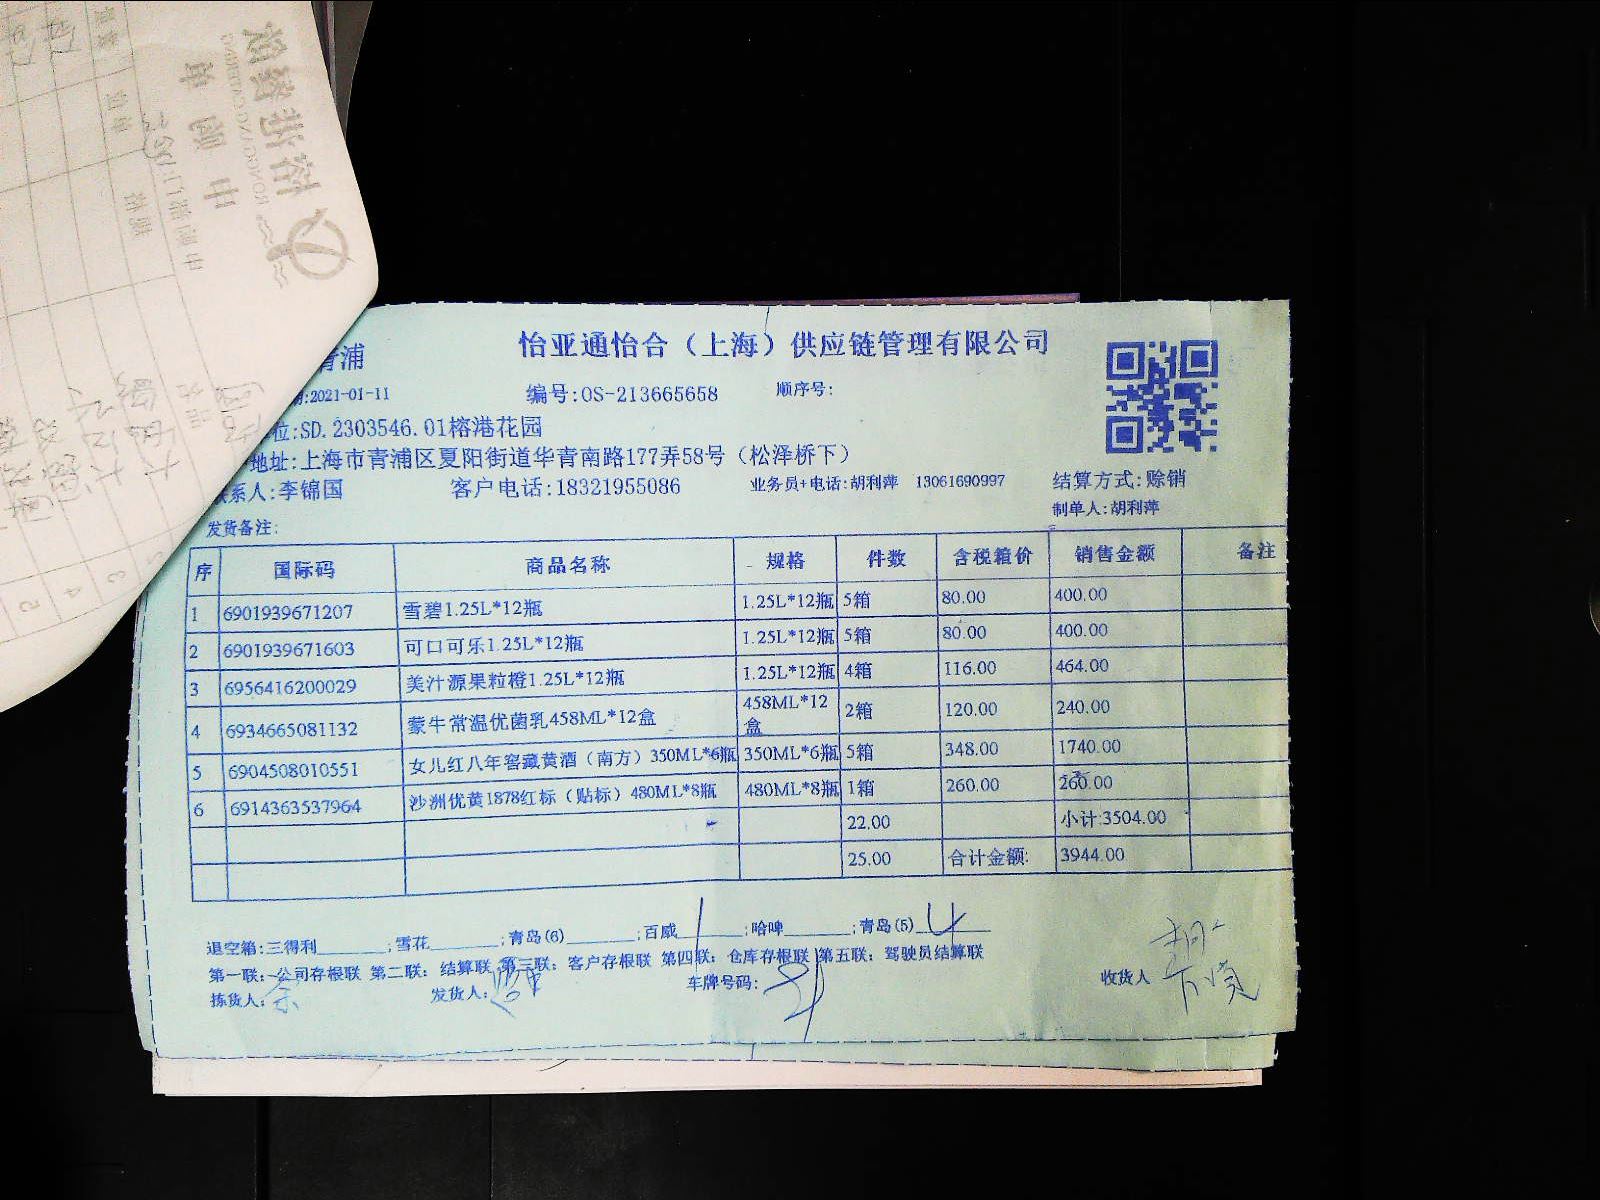 怡亚通怡合（上海）供应链管理有限公司
青浦
:2021-01-11 编号:OS-213665658 顺序号:
位:SD.2303546.01榕港花园
地址:上海市青浦区夏阳街道华青南路177弄58号（松泽桥下）
联系人:李锦国 客户电话:18321955086 业务员+电话:胡利萍 13061690997 结算方式:赊销
制单人:胡利萍
发货备注:
序 国际码 商品名称 规格 件数 含税箱价 销售金额 备注
1 6901939671207 雪碧1.25L*12瓶 1.25L*12瓶 5箱 80.00 400.00
2 6901939671603 可口可乐1.25L*12瓶 1.25L*12瓶 5箱 80.00 400.00
3 6956416200029 美汁源果粒橙1.25L*12瓶 1.25L*12瓶 4箱 116.00 464.00
4 6934665081132 蒙牛常温优菌乳458ML*12盒 458ML*12盒 2箱 120.00 240.00
5 6904508010551 女儿红八年窖藏黄酒（南方）350ML*6瓶 350ML*6瓶 5箱 348.00 1740.00
6 6914363537964 沙洲优黄1878红标（贴标）480ML*8瓶 480ML*8瓶 1箱 260.00 260.00
22.00 小计:3504.00
25.00 合计金额: 3944.00
退空箱:三得利______;雪花______;青岛(6)______;百威______;哈啤______;青岛(5) 4
第一联: 公司存根联 第二联: 结算联 第三联: 客户存根联 第四联: 仓库存根联 第五联: 驾驶员结算联
拣货人: 发货人: 车牌号码: 收货人